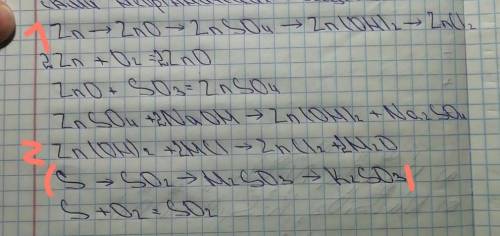 1 Zn → ZnO → ZnSO₄ → Zn(OH)₂ → ZnCl₂
2Zn + O₂ = 2ZnO
ZnO + SO₃ = ZnSO₄
ZnSO₄ + 2NaOH → Zn(OH)₂ + Na₂SO₄
2 Zn(OH)₂ + 2HCl → ZnCl₂ + 2H₂O
(S → SO₂ → H₂SO₃ → K₂SO₃)
S + O₂ = SO₂